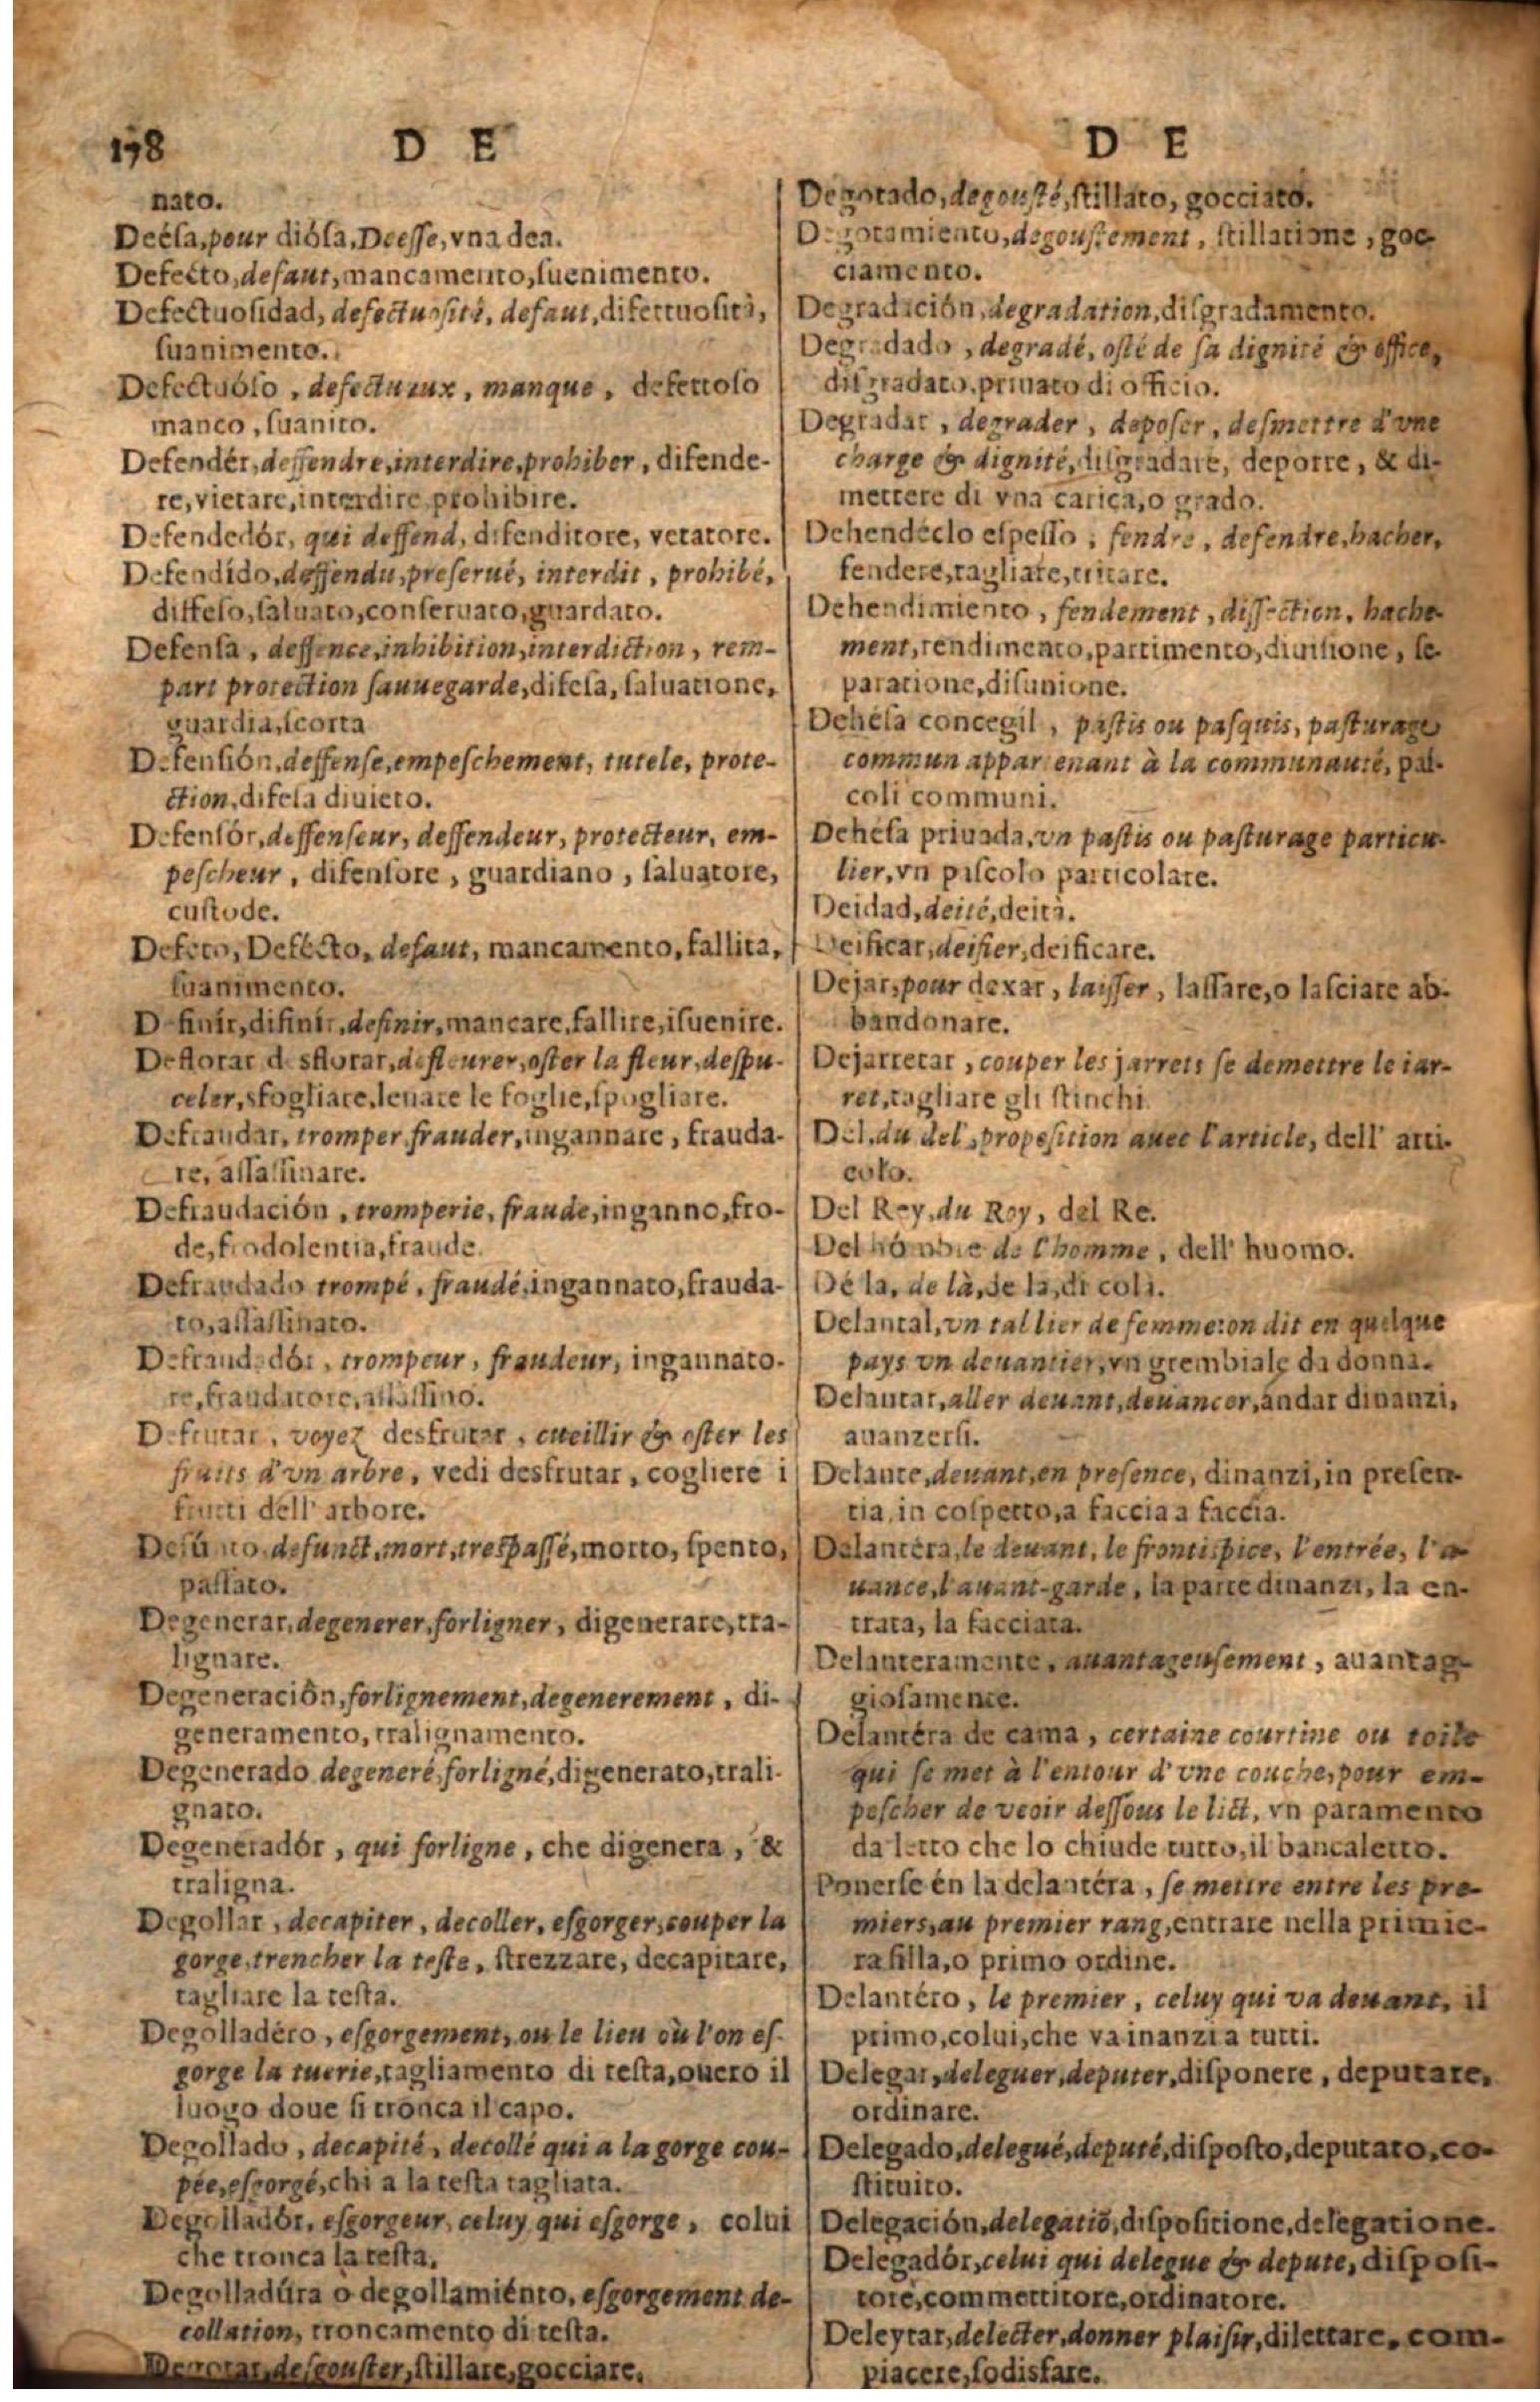 178
D E
nato.
Deésa, pour diósa, Deesse, vna dea.
Defecto, defaut, mancamento, suenimento.
Defectuosidad, defectuosité, defaut, difettuosità,
suanimento.
Defectuóso, defectueux, manque, defettoso
manco, suanito.
Defendér, deffendre, interdire, prohiber, difende-
re, vietare, interdire prohibire.
Defendedór, qui deffend, difenditore, vetatore.
Defendído, deffendu, preserué, interdit, prohibé,
diffeso, saluato, conseruato, guardato.
Defensa, deffence, inhibition, interdiction, rem-
part protection sauuegarde, difesa, saluatione,
guardia, scorta
Defensión, deffense, empeschement, tutele, prote-
ction, difesa diuieto.
Defensór, deffenseur, deffendeur, protecteur, em-
pescheur, difensore, guardiano, saluatore,
custode.
Defeto, Defécto, defaut, mancamento, fallita,
suanimento.
Definir, difinir, definir, mancare, fallire, isuenire.
Deflorar desflorar, defleurer, oster la fleur, despu-
celer, sfogliare, leuare le foglie, spogliare.
Defraudar, tromper frauder, ingannare, frauda-
re, assassinare.
Defraudación, tromperie, fraude, inganno, fro-
de, frodolentia, fraude.
Defraudado trompé, fraudé, ingannato, frauda-
to, assassinato.
Defraudadór, trompeur, fraudeur, ingannato-
re, fraudatore, assassino.
Defrutar, voyez desfrutar, cueillir & oster les
fruits d'vn arbre, vedi desfrutar, cogliere i
frutti dell' arbore.
Defúnto, defunct, mort, trespassé, morto, spento,
passato.
Degenerar, degenerer, forligner, digenerare, tra-
lignare.
Degeneración, forlignement, degenerement, di-
generamento, tralignamento.
Degenerado degeneré, forligné, digenerato, trali-
gnato.
Degeneradór, qui forligne, che digenera, &
traligna.
Degollar, decapiter, decoller, esgorger, couper la
gorge, trencher la teste, strezzare, decapitare,
tagliare la testa.
Degolladéro, esgorgement, ou le lieu où l'on es-
gorge la tuerie, tagliamento di testa, ouero il
luogo doue si tronca il capo.
Degollado, decapité, decollé qui a la gorge cou-
pée, esgorgé, chi a la testa tagliata.
Degolladór, esgorgeur, celuy qui esgorge, colui
che tronca la testa.
Degolladúra o degollamiénto, esgorgement de-
collation, troncamento di testa.
Degotar, desgouster, stillare, gocciare.
D E
Degotado, degousté, stillato, gocciato.
Degotamiento, degoustement, stillatione, goc-
ciamento.
Degradación, degradation, disgradamento.
Degradado, degradé, osté de sa dignité & office,
disgradato, priuato di officio.
Degradar, degrader, deposer, desmettre d'vne
charge & dignité, disgradare, deporre, & di-
mettere di vna carica, o grado.
Dehendéclo espesso, fendre, defendre, hacher,
fendere, tagliare, tritare.
Dehendimiento, fendement, dissection, hache-
ment, rendimento, partimento, diuisione, se-
paratione, disunione.
Dehésa concegil, pastis ou pasquis, pasturage
commun appartenant à la communauté, pas-
coli communi.
Dehésa priuada, vn pastis ou pasturage particu-
lier, vn piscolo particolare.
Deidad, deité, deità.
Deificar, deifier, deificare.
Dejar, pour dexar, laisser, lassare, o lasciare ab-
bandonare.
Dejarretar, couper les jarrets se demettre le iar-
ret, tagliare gli stinchi.
Del, du del, proposition auec l'article, dell' arti-
colo.
Del Rey, du Roy, del Re.
Del hómbre de l'homme, dell' huomo.
Dé la, de là, de la, di colà.
Delantal, vn tallier de femme: on dit en quelque
pays vn deuantier, vn grembiale da donna.
Delantar, aller deuant, deuancer, andar dinanzi,
auanzersi.
Delante, deuant, en presence, dinanzi, in presen-
tia, in cospetto, a faccia a faccia.
Delantéra, le deuant, le frontispice, l'entrée, l'a-
uance, l'auant-garde, la parte dinanzi, la en-
trata, la facciata.
Delanteramente, auantageusement, auantag-
giosamente.
Delantéra de cama, certaine courtine ou toile
qui se met à l'entour d'vne couche, pour em-
pescher de veoir dessous le lict, vn paramento
da letto che lo chiude tutto, il bancaletto.
Ponerse én la delantéra, se mettre entre les pre-
miers, au premier rang, entrare nella primie-
ra filla, o primo ordine.
Delantéro, le premier, celuy qui va deuant, il
primo, colui, che va inanzi a tutti.
Delegar, deleguer, deputer, disponere, deputare,
ordinare.
Delegado, delegué, deputé, disposto, deputato, co-
stituito.
Delegación, delegatiō, dispositione, delegatione.
Delegadór, celui qui delegue & depute, disposi-
tore, commettitore, ordinatore.
Deleytar, delecter, donner plaisir, dilettare, com-
piacere, sodisfare.